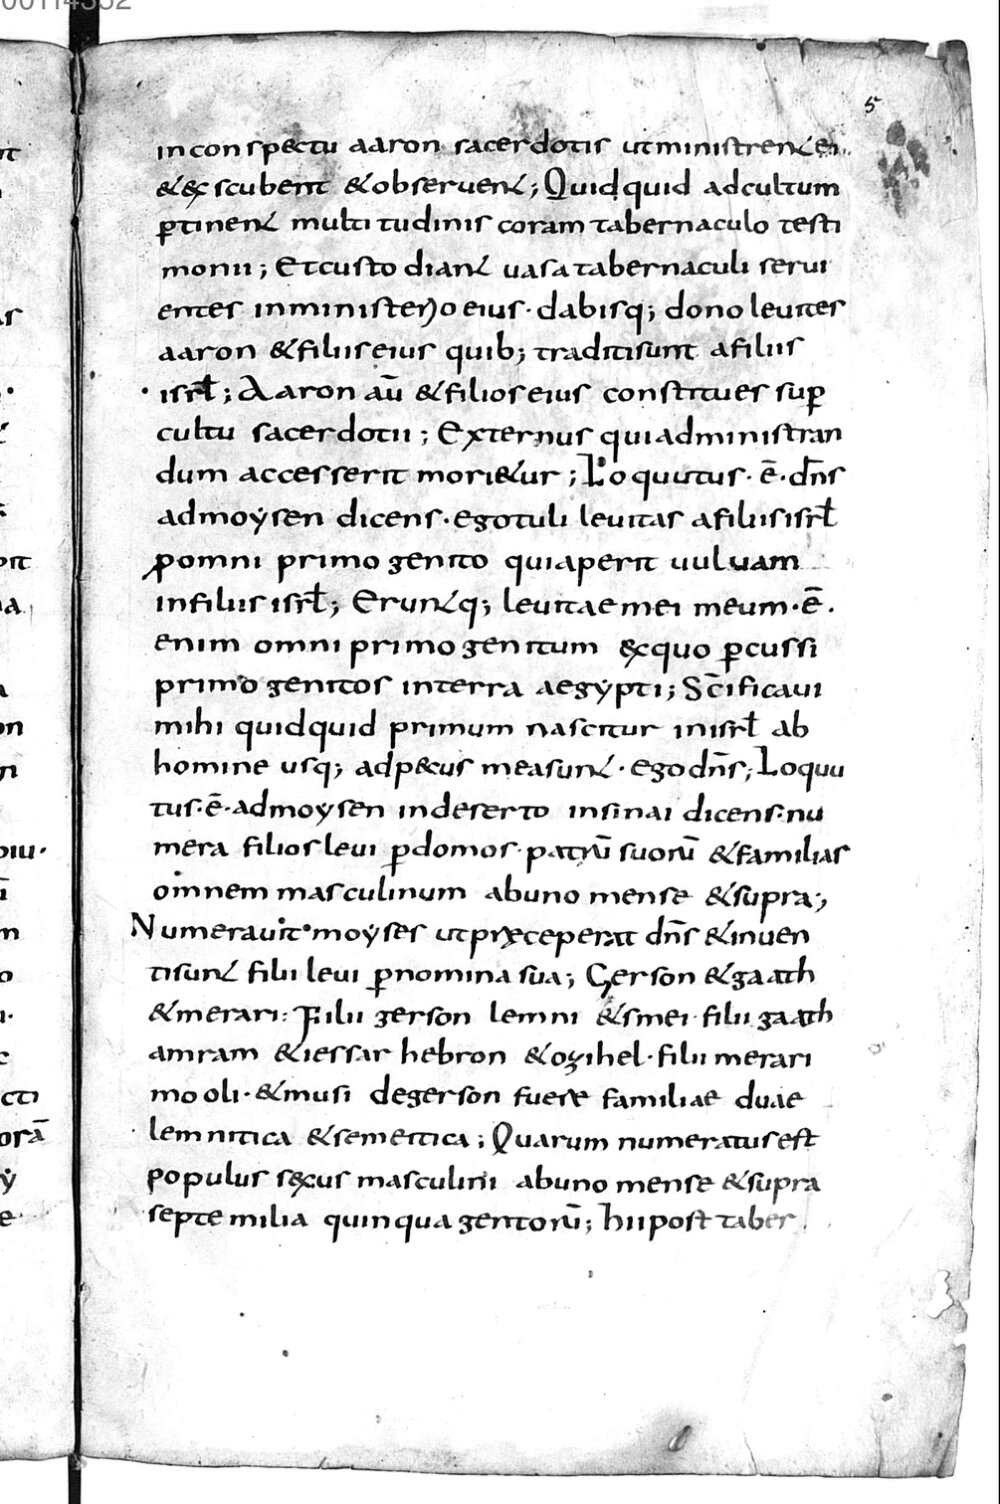 5
in conspectu aaron sacerdotis ut ministrent ei
& excubent & observent; Quidquid ad cultum
ꝑtinent multitudinis coram tabernaculo testi
monii; Et custodiant vasa tabernaculi servi
entes in ministerio eius · dabisq; dono levites
aaron & filiis eius quib; traditi sunt a filiis
· isrł; Aaron aū & filios eius constitues suꝑ
cultu sacerdotii; Externus qui administran
dum accesserit mori&ur; Loquutus · ē · dn̄s
ad moẏsen dicens · ego tuli levitas a filiis isrł
ꝑ omni primogenito qui aperit vulvam
in filiis isrł; Eruntq; levitae mei meum · ē ·
enim omni primogenitum ex quo ꝑcussi
primogenitos in terra aegẏpti; Sc̄ificavi
mihi quidquid primum nascitur in isrł ab
homine usq; ad pecus mea sunt · ego dn̄s; Loquu
tus · ē · ad moẏsen in deserto in sinai dicens · nu
mera filios levi ꝑ domos patrū suorū & familias
omnem masculinum ab uno mense & supra;
Numeravit · moẏses ut præceperat dn̄s & inven
ti sunt filii levi ꝑ nomina sua; Gerson & gaath
& merari: Filii gerson lemni & smei · filii gaath
amram & iessar hebron & ozihel · filii merari
mooli · & musi de gerson fuere familiae duae
lemnitica & semeitica; Quarum numeratus est
populus sexus masculini ab uno mense & supra
septe milia quinquagentorū; hii post taber